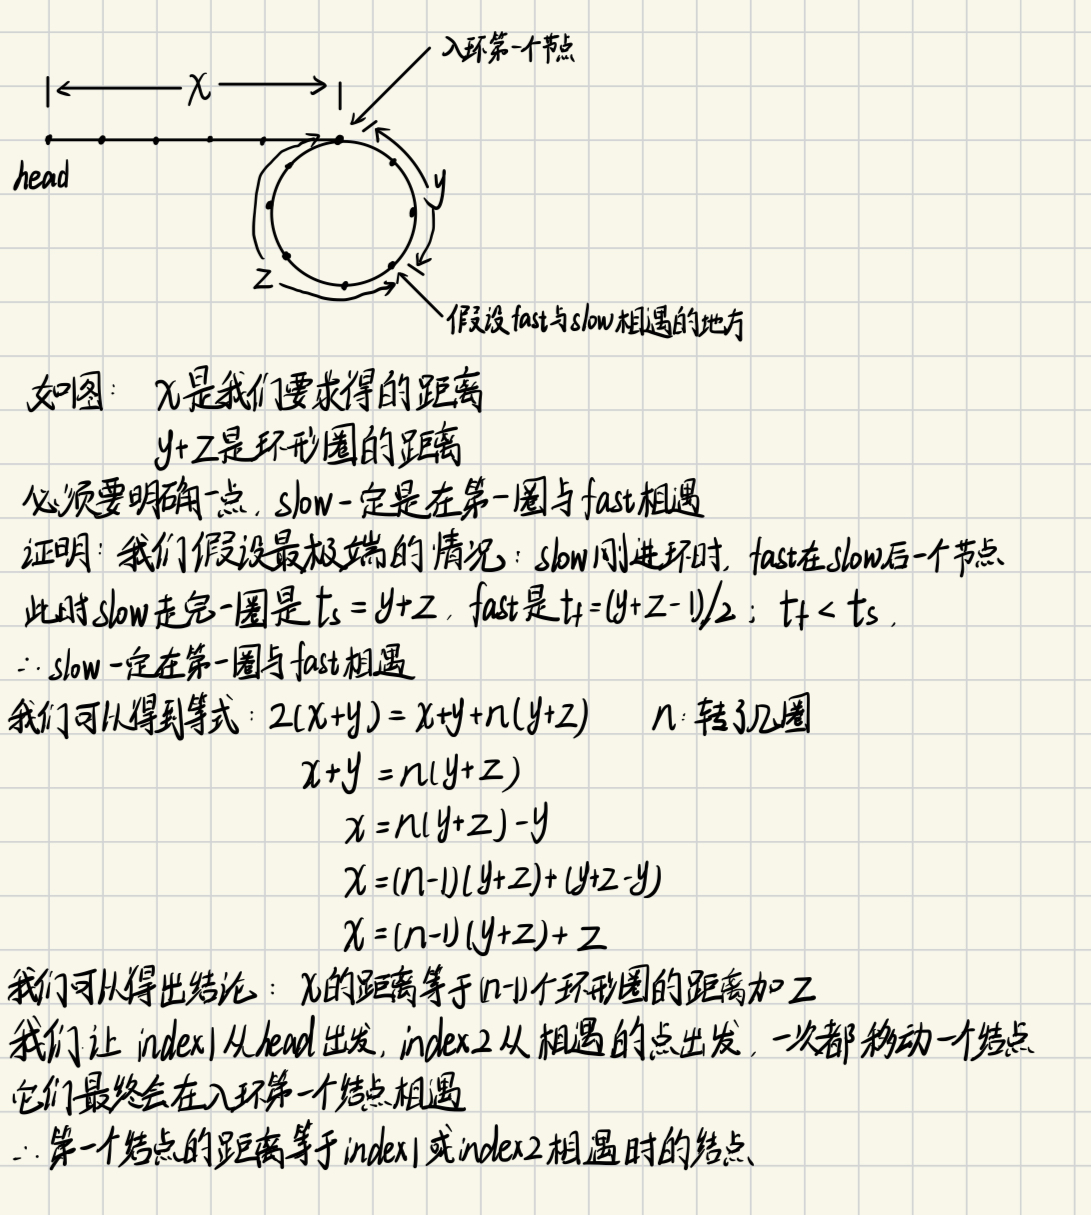 入环第一个节点
x
head
y
z
假设fast与slow相遇的地方
如图: x是我们要求得的距离
y+z是环形圈的距离
必须要明确一点, slow一定是在第一圈与fast相遇
证明: 我们假设最极端的情况: slow刚进环时, fast在slow后一个节点
此时slow走完一圈是ts = y+z, fast是tf=(y+z-1)/2; tf < ts,
∴ slow一定在第一圈与fast相遇
我们可以得到等式: 2(x+y) = x+y+n(y+z) n: 转了几圈
x+y = n(y+z)
x = n(y+z)-y
x = (n-1)(y+z)+(y+z-y)
x = (n-1)(y+z)+z
我们可以得出结论: x的距离等于(n-1)个环形圈的距离加z
我们让 index1从head出发, index2从相遇的点出发, 一次都移动一个结点
它们最终会在入环第一个结点相遇
∴ 第一个结点的距离等于index1或index2相遇时的结点